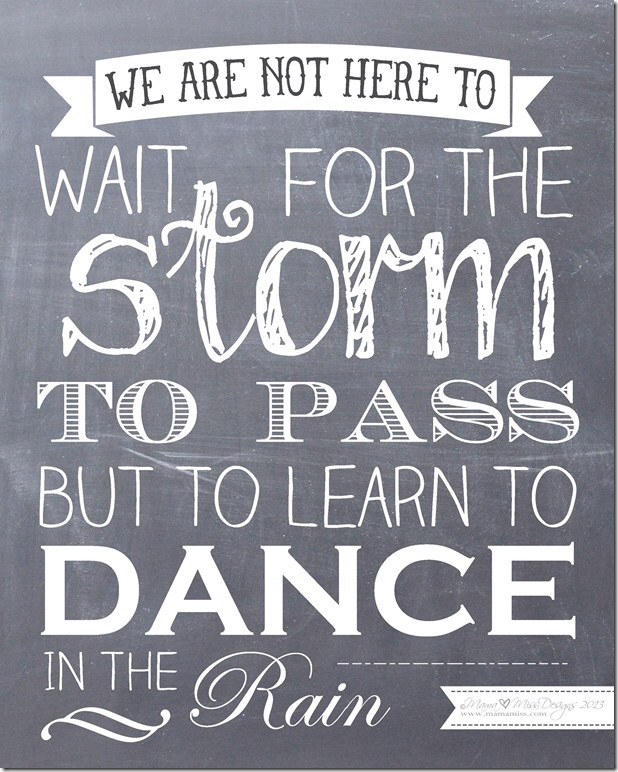 WE ARE NOT HERE TO
WAIT FOR THE
storm
TO PASS
BUT TO LEARN TO
DANCE
IN THE
Rain
Mama ♡ Miss Designs 2013
www.mamamiss.com